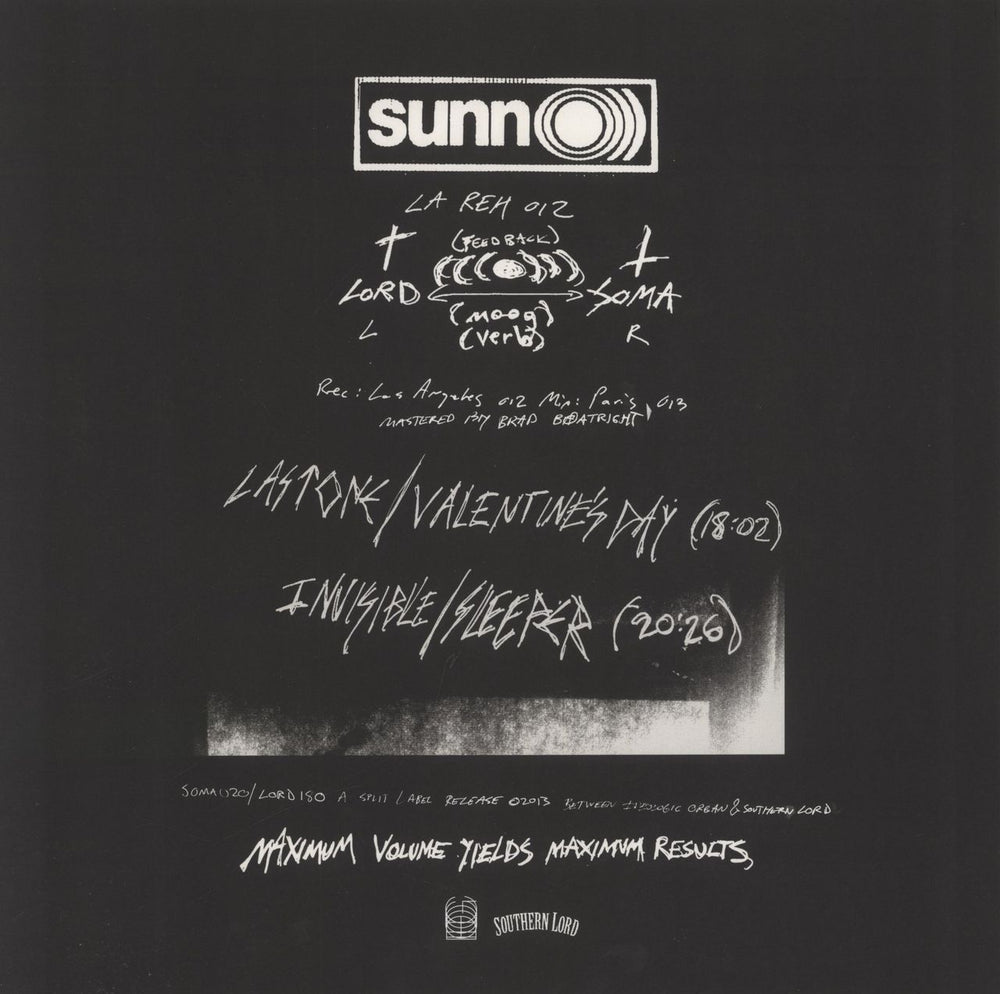 sunn O)))
LA REH 012
(FEEDBACK)
LORD SOMA
(moog)
L R
(verb)
Rec: Los Angeles 012 Mix: Paris, 013
MASTERED BY BRAD BOATRIGHT
LASTONE/VALENTINE'S DAY (18:02)
INVISIBLE/SLEEPER (20:26)
SOMA020/LORD180 A SPLIT LABEL RELEASE ©2013 BETWEEN IDEOLOGIC ORGAN & SOUTHERN LORD
MAXIMUM VOLUME YIELDS MAXIMUM RESULTS,
SOUTHERN LORD